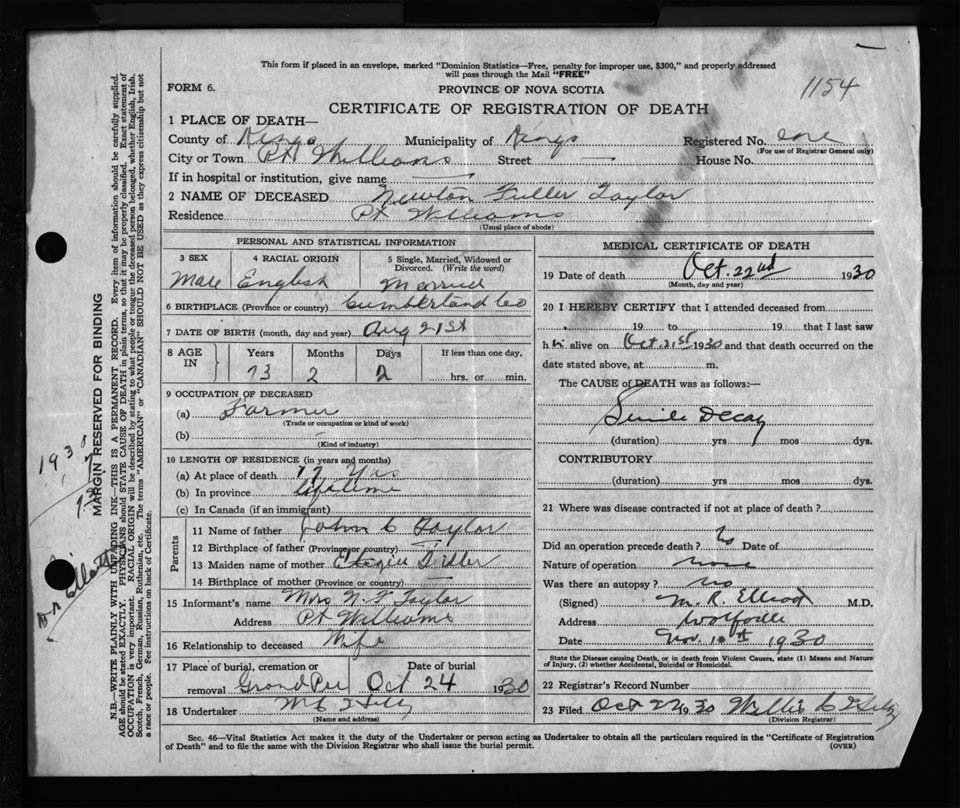 This form if placed in an envelope, marked "Dominion Statistics—Free, penalty for improper use, $300," and properly addressed
will pass through the Mail "FREE"
FORM 6.
PROVINCE OF NOVA SCOTIA
1154
CERTIFICATE OF REGISTRATION OF DEATH
1 PLACE OF DEATH—
County of Kings Municipality of Kings Registered No. one
(For use of Registrar General only)
City or Town Pt Williams Street — House No.
If in hospital or institution, give name —
2 NAME OF DECEASED Newton Fuller Taylor
Residence Pt Williams
(Usual place of abode)
PERSONAL AND STATISTICAL INFORMATION
3 SEX 4 RACIAL ORIGIN 5 Single, Married, Widowed or
Divorced. (Write the word)
Male English Married
6 BIRTHPLACE (Province or country) Cumberland Co
7 DATE OF BIRTH (month, day and year) Aug 21st
8 AGE IN Years Months Days If less than one day,
73 2 2 hrs. or min.
9 OCCUPATION OF DECEASED
(a) Farmer
(Trade or occupation or kind of work)
(b) —
(Kind of industry)
10 LENGTH OF RESIDENCE (in years and months)
(a) At place of death 17 Yrs
(b) In province Lifetime
(c) In Canada (if an immigrant)
Parents
11 Name of father John C Taylor
12 Birthplace of father (Province or country) —
13 Maiden name of mother
14 Birthplace of mother (Province or country) —
15 Informant's name Mrs N. F Taylor
Address Pt Williams
16 Relationship to deceased Wife
17 Place of burial, cremation or Date of burial
removal Grand Pre Oct 24 1930
18 Undertaker W C
(Name and address)
MEDICAL CERTIFICATE OF DEATH
19 Date of death Oct. 22nd 1930
(Month, day and year)
20 I HEREBY CERTIFY that I attended deceased from
19 to 19 that I last saw
him alive on Oct. 21st 1930 and that death occurred on the
date stated above, at m.
The CAUSE of DEATH was as follows:—
Senile Decay
(duration) yrs mos dys.
CONTRIBUTORY
(duration) yrs mos dys.
21 Where was disease contracted if not at place of death?
Did an operation precede death? No Date of
Nature of operation none
Was there an autopsy? no
(Signed) M. R. Elliott M.D.
Address Wolfville
Date Nov. 10th 1930
State the Disease causing Death, or in death from Violent Causes, state (1) Means and Nature
of Injury, (2) whether Accidental, Suicidal or Homicidal.
22 Registrar's Record Number
23 Filed Oct 22 1930 Willis C
(Division Registrar)
Sec. 46—Vital Statistics Act makes it the duty of the Undertaker or person acting as Undertaker to obtain all the particulars required in the "Certificate of Registration
of Death" and to file the same with the Division Registrar who shall issue the burial permit.
(OVER)
MARGIN RESERVED FOR BINDING
N.B.—WRITE PLAINLY WITH UNFADING INK—THIS IS A PERMANENT RECORD. Every item of information should be carefully supplied.
AGE should be stated EXACTLY. PHYSICIANS should STATE CAUSE OF DEATH in plain terms, so that it may be properly classified. Exact statement of
OCCUPATION is very important. RACIAL ORIGIN will be described by stating to what people or tongue the deceased person belonged, whether English, Irish,
Scotch, French, German, Russian, Ruthenian, etc. The terms "AMERICAN" or "CANADIAN" SHOULD NOT BE USED as they express citizenship but not
a race or people. Fee instructions on back of Certificate.
Dr Elliott